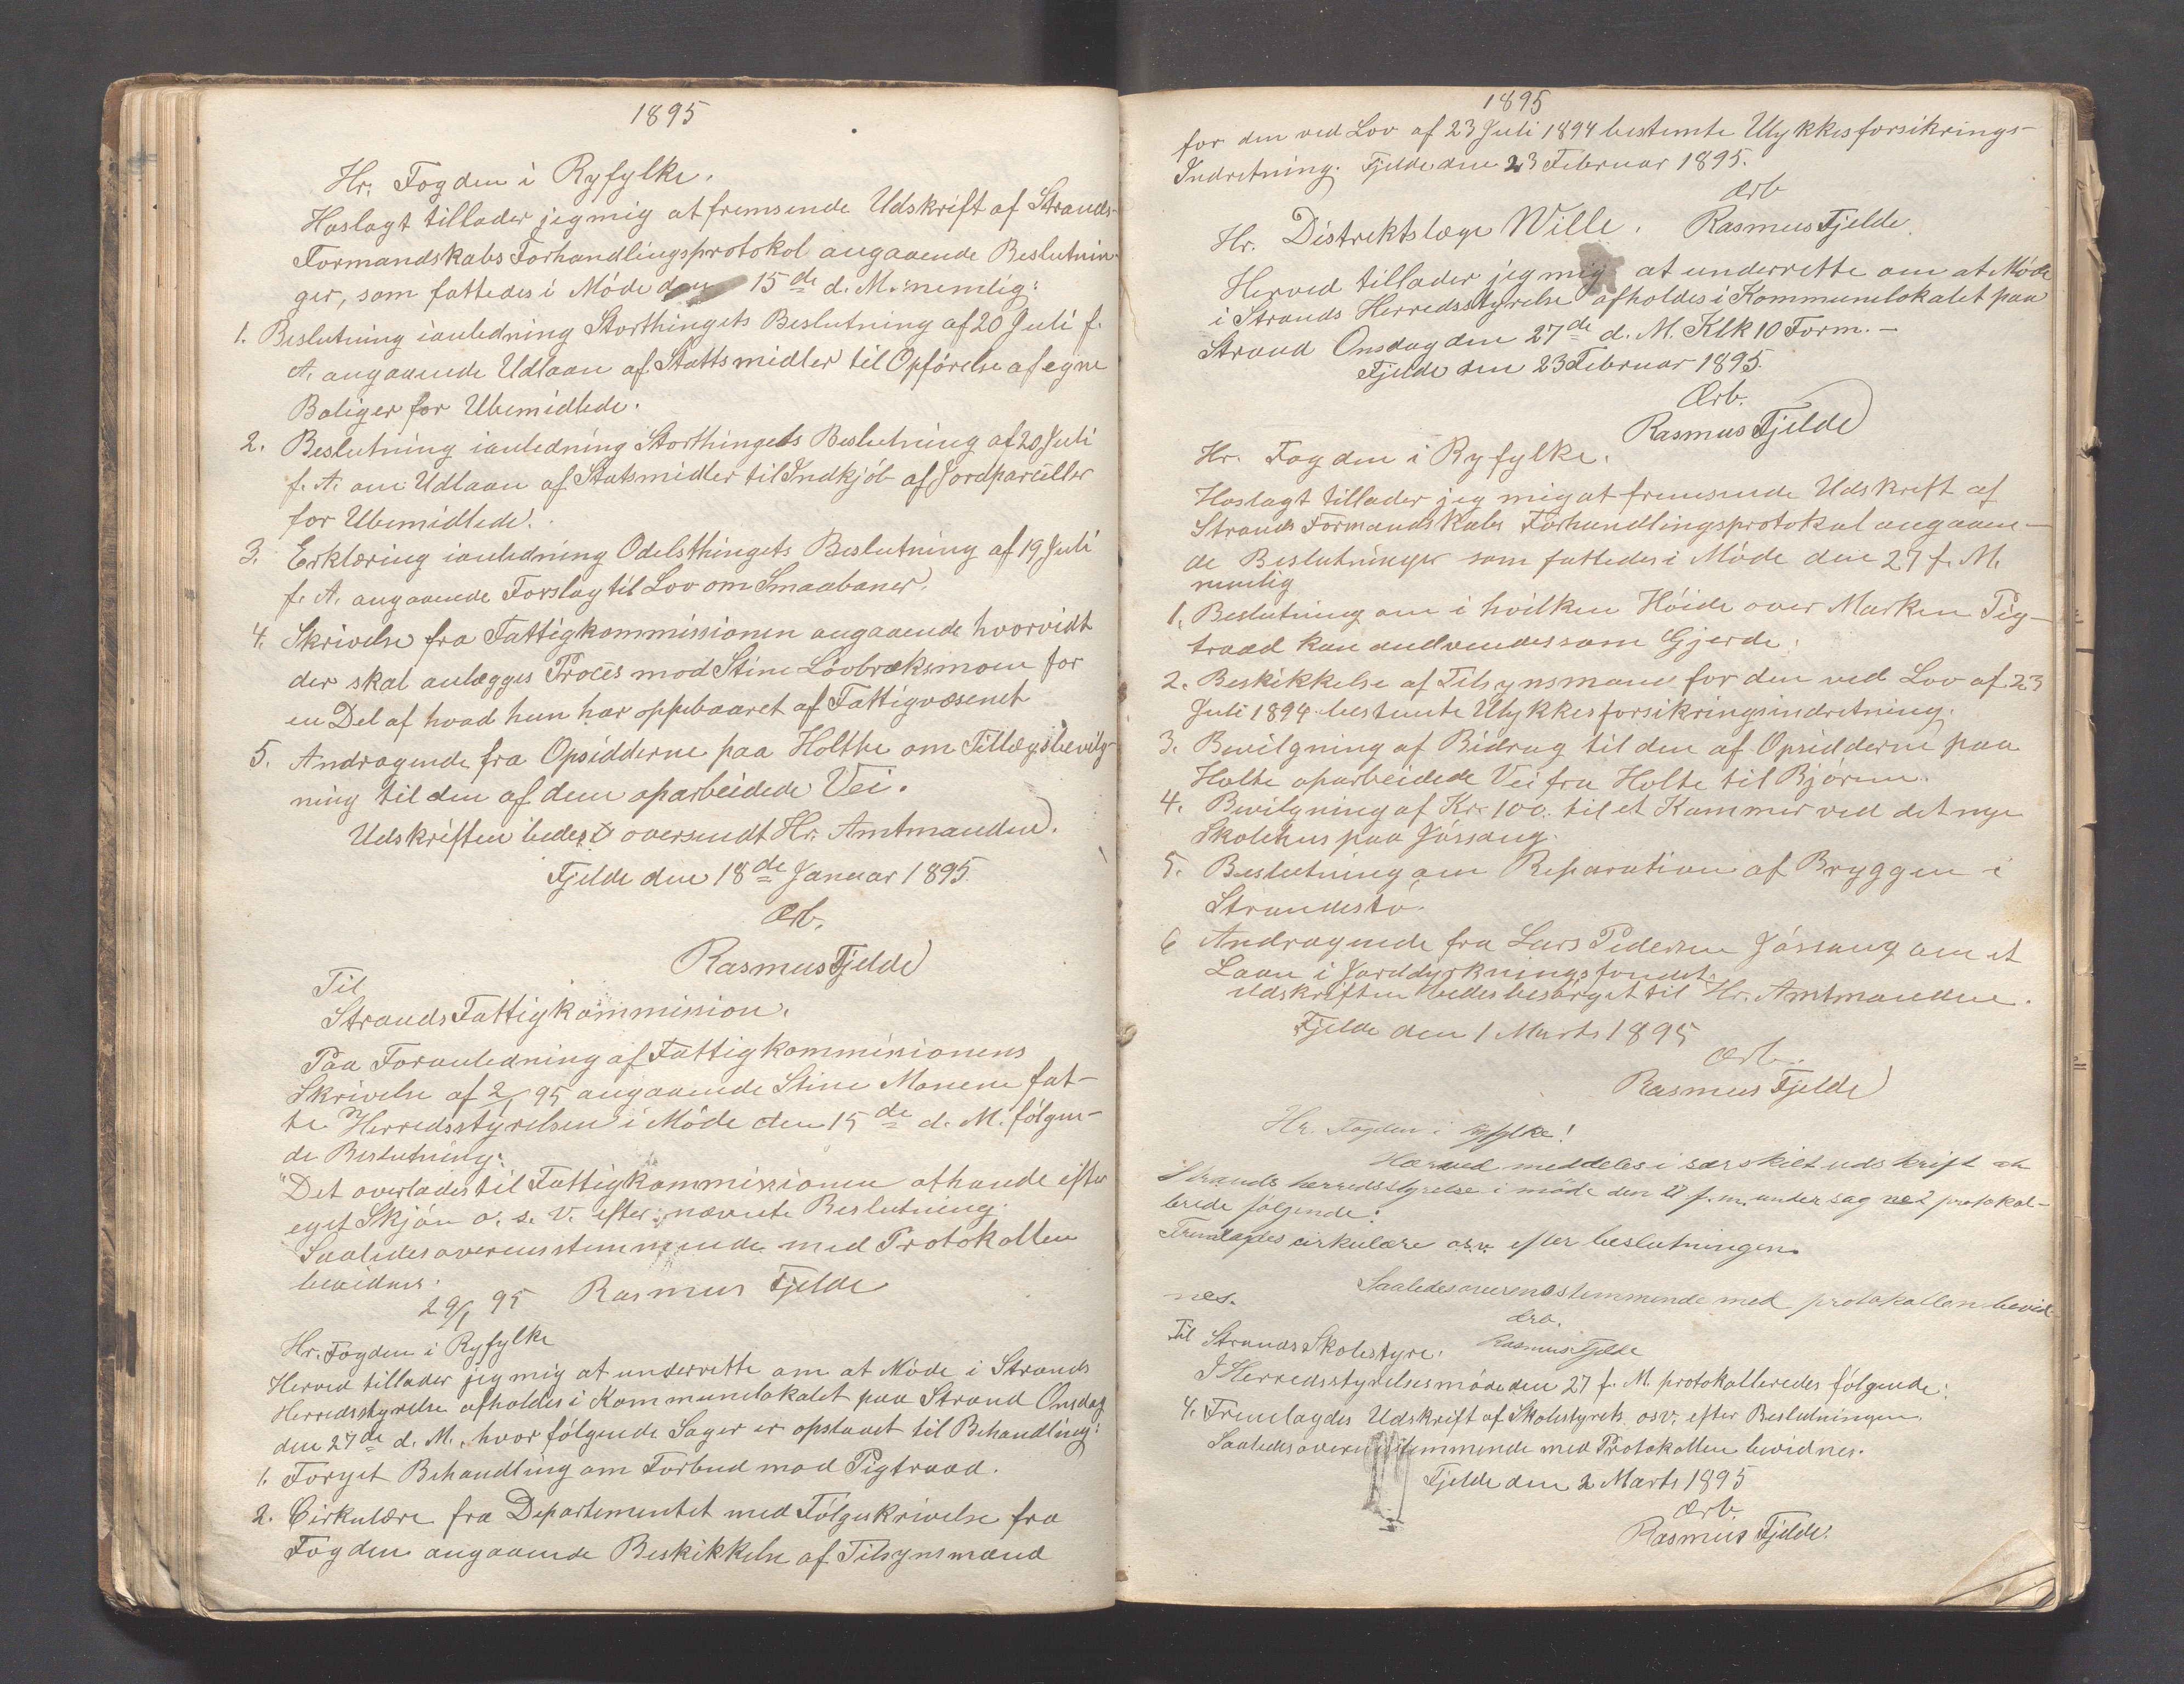 1895
Hr. Fogden i Ryfylke.
Hoslagt tillader jeg mig at fremsende Udskrift af Strands-
Formandskabs Forhandlingsprotokol angaaende Beslutnin-
ger, som fattedes i Møde den 15de d. M. nemlig:
1. Beslutning ianledning Storthingets Beslutning af 20 Juli f.
A. angaaende Udlaan af Stattsmidler til Opførelse af egne
Boliger for Ubemidlede.
2. Beslutning ianledning Storthingets Beslutning af 20 Juli
f. A. om Udlaan af Statsmidler til Indkjøb af Jordparceller
for Ubemidlede.
3. Erklæring ianledning Odelsthingets Beslutning af 19 Juli
f. A. angaaende Forslag til Lov om Smaabaner.
4. Skrivelse fra Fattigkommissionen angaaende hvorvidt
der skal anlægges Proces mod Stine Løvbræksmoen for
en Del af hvad hun har oppebaaret af Fattigvæsenet
5. Andragende fra Opsidderne paa Holthe om Tillægsbevilg-
ning til den af dem oparbeidede Vei.
Udskriften bedes oversendt Hr. Amtmanden.
Fjelde den 18de Januar 1895.
Ærb.
Rasmus Fjelde
Til
Strands Fattigkommission.
Paa Foranledning af Fattigkommissionens
Skrivelse af 2/1 95 angaaende Stine Monene fat-
te Herredsstyrelsen i Møde den 15de d. M. følgen-
de Beslutning:
"Det overlades til Fattigkommissionen athande efter
eget Skjøn o. s. v. efter nævnte Beslutning.
Saaledes overensstemmende med Protokollen
bevidnes.
29/1 95 Rasmus Fjelde
Hr. Fogden i Ryfylke
Herved tillader jeg mig at underrette om at Møde i Strands
Herredsstyrelse afholdes i Kommunelokalet paa Strand Onsdag
den 27de d. M., hvor følgende Sager er opstaaet til Behandling:
1. Forget Behandling om Forbud mod Pigtraad.
2. Cirkulære fra Departementet med Følgeskrivelse fra
Fogden angaaende Beskikkelse af Tilsynsmænd
1895
for den ved Lov af 23 Juli 1894 bestemte Ulykkesforsikrings-
Indretning. Fjelde den 23 Februar 1895.
Ærb
Hr. Distriktslæge Wille. Rasmus Fjelde.
Herved tillader jeg mig at underrette om at Møde
i Strands Herredsstyrelse afholdes i Kommunelokalet paa
Strand Onsdag den 27de d. M. Klk 10 Form. –
Fjelde den 23 Februar 1895.
Ærb.
Rasmus Fjelde
Hr. Fogden i Ryfylke.
Hoslagt tillader jeg mig at fremsende Udskrift af
Strands Formandskabs Forhandlingsprotokol angaaen-
de Beslutninger som fattedes i Møde den 27 f. M.
nemlig
1. Beslutning om i hvilken Høide over Marken Pig-
traad kan andvendes som Gjerde.
2. Beskikkelse af Tilsynsmænd for den ved Lov af 23
Juli 1894 bestemte Ulykkesforsikringsindretning.
3. Bevilgning af Bidrag til den af Opsidderne paa
Holte oparbeidede Vei fra Holte til Bjøren.
4. Bevilgning af Kr. 100. til et Kammer ved det nye
Skolehus paa Jøssang.
5. Beslutning om Reparation af Bryggen i
Strandestø.
6 Andragende fra Lars Pedersen Jøssang om et
Laan i Jorddyrkningsfondet.
Udskriften bedes besørget til Hr. Amtmanden.
Fjelde den 1 Marts 1895
Ærb.
Rasmus Fjelde
Hr. Fogden i Ryfylke!
Herved meddeles i særskilt udskrift at
Strands herredsstyrelse i møde den 27 f. m. under sag no 2 protokol-
lerede følgende:
Fremlagdes cirkulære osv. efter beslutningen.
Saaledes overensstemmende med protokollen bevid-
nes.
Ærb.
Til Strands Skolestyre. Rasmus Fjelde
I Herredsstyrelsesmøde den 27 f. M. protokolleredes følgende:
4. Fremlagdes Udskrift af Skolestyrets osv. efter Beslutningen.
Saaledes overensstemmende med Protokollen bevidnes.
Fjelde den 2 Marts 1895
Ærb.
Rasmus Fjelde.